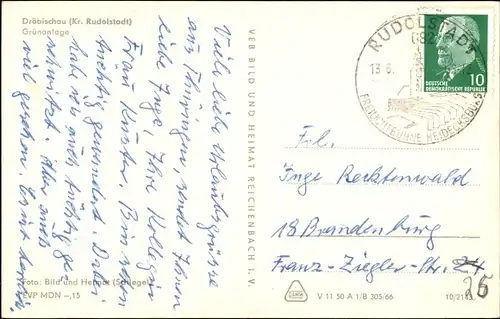 Dröbischau (Kr. Rudolstadt)
Grünanlage
Viele liebe Urlaubsgrüsse
aus Thüringen, sendet Ihnen
liebe Inge, Ihre Kollegin
Frau Küster. Bin schon
tüchtig gewandert. Dabei
habe ich auch tüchtig ge-
schwitzt. Aber auch
viel gesehen.
Foto: Bild und Heimat (Schlegel)
EVP MDN –,15
VEB BILD UND HEIMAT REICHENBACH I. V.
RUDOLSTADT
682
13.6.
FREILICHTBÜHNE HEIDECKSBURG
DEUTSCHE
DEMOKRATISCHE REPUBLIK
10
Frl.
Inge Recktenwald
18 Brandenburg
Franz-Ziegler-Str. 24
26
V 11 50 A 1/B 305/66
10/2143